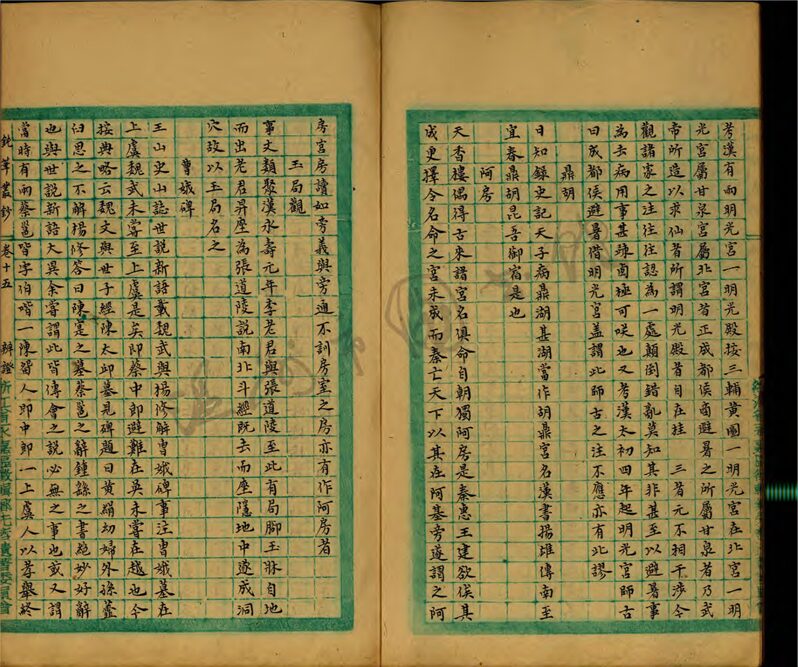 考漢有兩明光宮一明光殿按三輔黃圖一明光宮在北宮一明
光宮屬甘泉宮屬北宮者正成都侯商避暑之所屬甘泉者乃武
帝所造以求仙者所謂明光殿者自在桂　三者元不相干涉今
觀諸家之注往往認為一處顛倒錯亂莫知其非甚至以避暑事
為去病用事甚疎鹵極可咲也又考漢太初四年起明光宮師古
曰成都侯避暑借明光宮蓋謂此師古之注不應亦有此謬
鼎胡
日知錄史記天子病鼎湖甚湖當作胡鼎宮名漢書揚雄傳南至
宜春鼎胡昆吾御宿是也
阿房
天香樓偶得古來諸宮名滇命自朝獨阿房是秦惠王建欲俟其
成更擇令名命之宮未成而秦亡天下以其在阿基旁遂謂之阿
房宮房讀如旁義與旁通不訓房室之房亦有作阿房者
玉局觀
事文類聚漢永壽元年李老君與張道陵至此有局腳玉牀自地
而出老君昇座為張道陵說南北斗經既去而座隱地中遂成洞
穴故以玉局名之
曹娥碑
王山史山志世說新語載魏武與揚修解曹娥碑事注曹娥墓在
上虞魏武未嘗至上虞是矣即蔡中郎避難在吳未嘗在越也今
按典略云魏文與世子經陳太邱墓見碑題曰黃絹幼婦外孫虀
臼思之不解揚修答曰陳寔之墓蔡邕之辭鍾繇之書絕妙好辭
也與世說新語大異余嘗謂此皆傅會之說必無之事也或又謂
當時有兩蔡邕皆字伯喈一陳留人即中郎一上虞人以孝舉終
叢鈔 卷十五 辨證